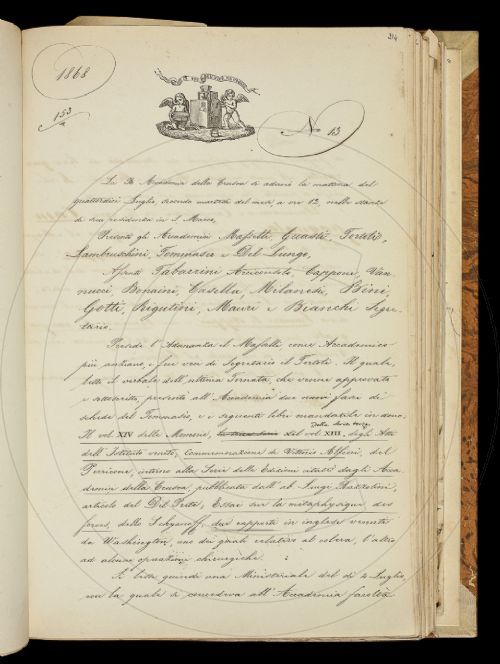 214
1868
153
N. 13
La R. Accademia della Crusca si adunò la mattina del
quattordici Luglio, secondo martedì del mese, a ore 12, nelle stanze
di sua residenza in S. Marco,
Presenti gli Accademici Masselli, Guasti, Tortoli,
Lambruschini, Tommaseo e Del Lungo,
Assenti Tabarrini Arciconsolo Capponi, Van-
nucci Bonaini, Casella, Milanesi, Bini,
Gotti, Rigutini, Mauri e Bianchi Segre-
tario.
Presiede l'Adunanza il Masselli come Accademico
più anziano, e fece veci di Segretario il Tortoli. Il quale,
letto il verbale dell'ultima Tornata, che venne approvato
e sottoscritto, presentò all'Accademia due nuovi fasci di
schede del Tommaseo, e i seguenti libri mandatile in dono.
Della serie terza
Il vol. XIV delle Memorie, del vol XIII. degli Atti
dell'Istituto veneto, Commemorazione di Vittorio Alfieri, del
Perricone, intorno alla Serie delle Edizioni citate dagli Acca-
demici della Crusca, pubblicata dall'ab. Luigi Razzolini,
articolo del Del Prete, Essai sur la métaphysique des
forces, dello due rapporti in inglese venuti
da Washington, uno dei quali relativo al colera, l'altro
ad alcune operazioni chirurgiche.
Si lesse quindi una Ministeriale del dì 4 Luglio,
con la quale si concedeva all'Accademia facoltà